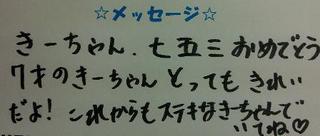 ☆メッセージ☆
きーちゃん、七五三おめでとう
7才のきーちゃんとってもきれい
だよ！これからもステキなきーちゃんで
いてね♡